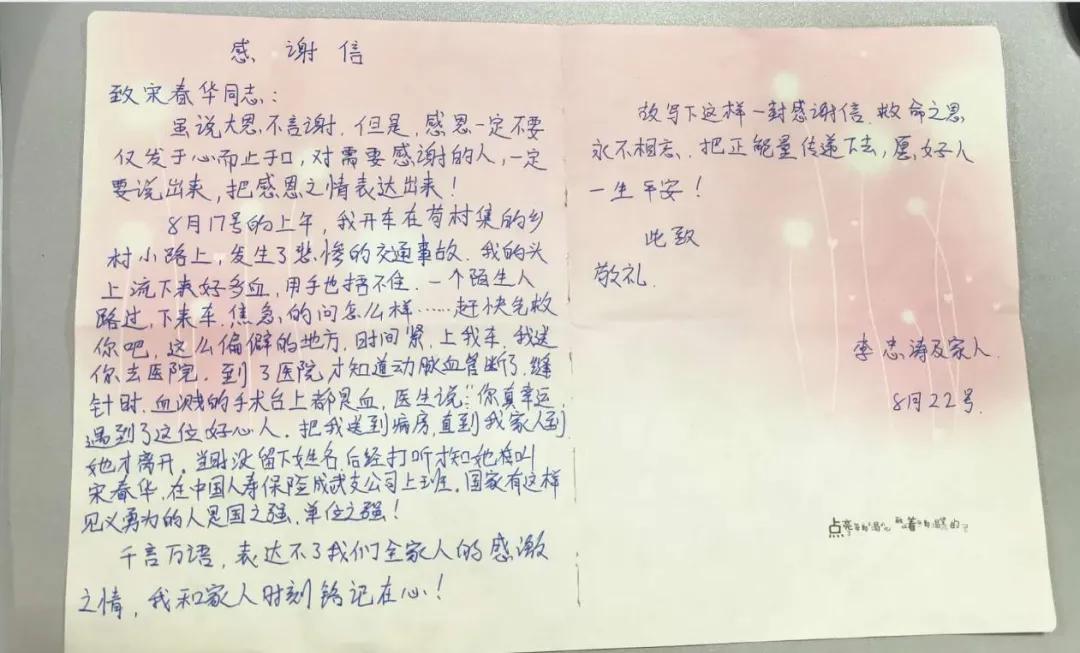 感谢信
致宋春华同志：
虽说大恩不言谢.但是,感恩一定不要
仅发于心而止于口，对需要感谢的人，一定
要说出来，把感恩之情表达出来！
8月17号的上午，我开车在苟村集的乡
村小路上，发生了悲惨的交通事故.我的头
上流下来好多血,用手也捂不住.一个陌生人
路过,下来车.焦急的问怎么样……赶快先救
你吧,这么偏僻的地方.时间紧.上我车.我送
你去医院.到了医院才知道动脉血管断了.缝
针时.血溅的手术台上都是血,医生说:"你真幸运,
遇到了这位好心人.把我送到病房,直到我家人到
她才离开.当时没留下姓名.后经打听才知她叫
宋春华.在中国人寿保险成武支公司上班.国家有这样
见义勇为的人是国之强.单位之强！
千言万语，表达不了我们全家人的感激
之情，我和家人时刻铭记在心！
故写下这样一封感谢信.救命之恩
永不相忘.把正能量传递下去,愿好人
一生平安！
此致
敬礼.
李忠涛及家人.
8月22号.